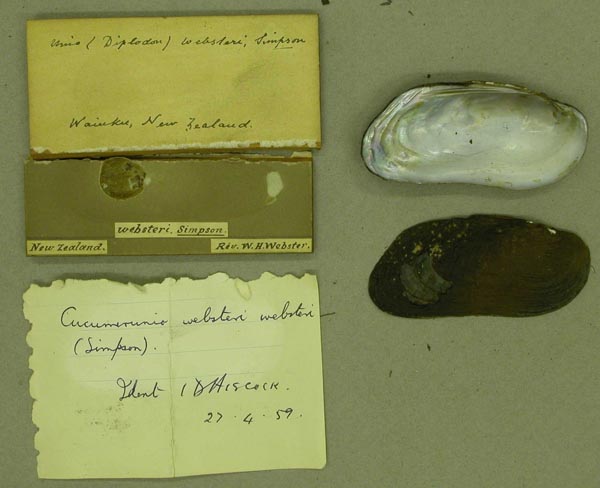 Unio (Diplodon) websteri, Simpson
Waiuku, New Zealand.
websteri, Simpson.
New Zealand.
Rev. W. H. Webster.
Cucumerunio websteri websteri
(Simpson).
Ident I D Hiscock.
27. 4. 59.